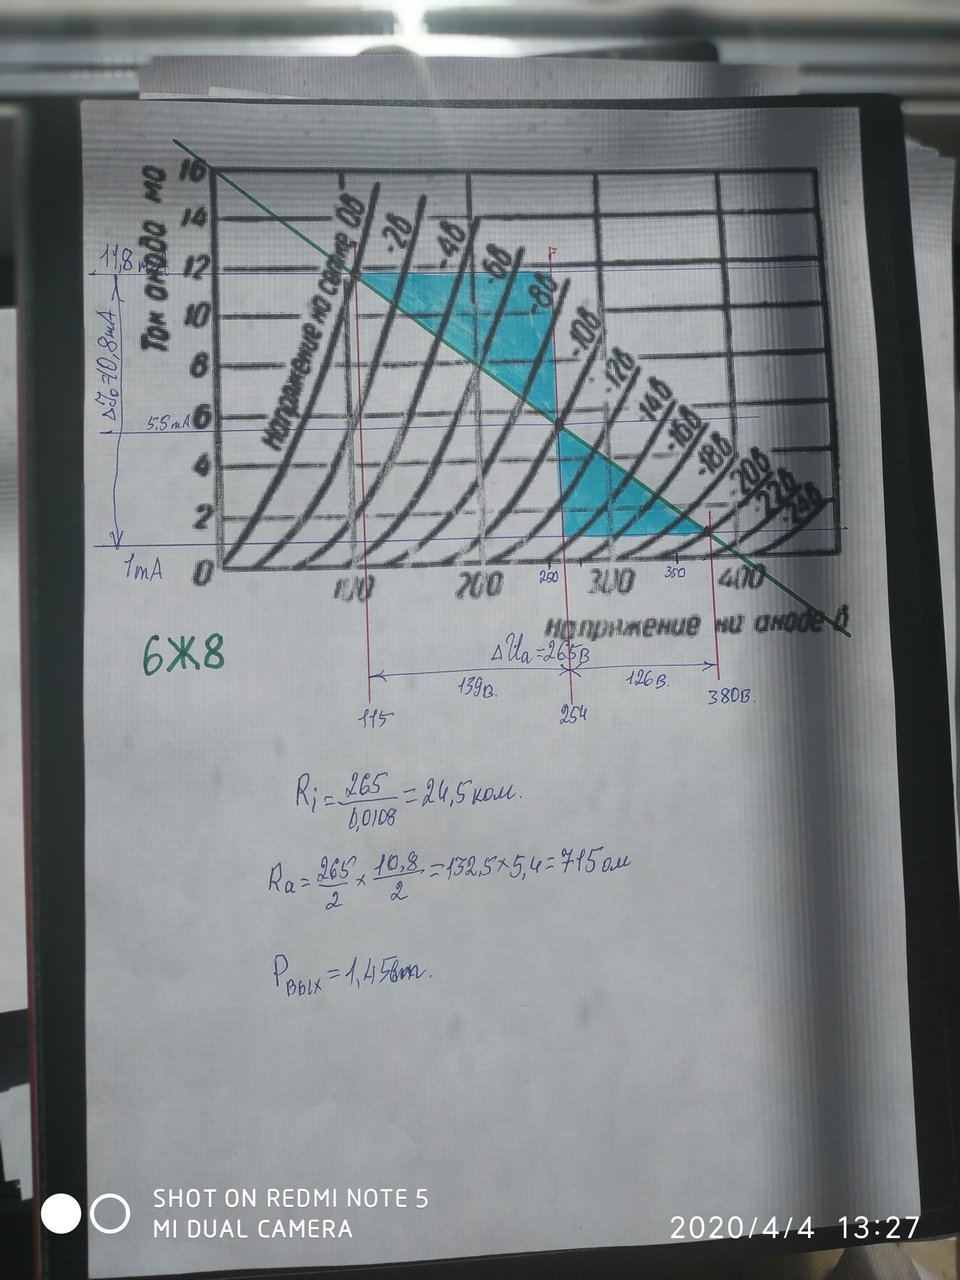 Ток анода ма
16
14
12
10
8
6
4
2
0
Напряжение на сетке 0в
-2в
-4в
-6в
-8в
-10в
-12в
-14в
-16в
-18в
-20в
-22в
-24в
11,8
5.5mA
1mA
100
200
250
300
350
400
напряжение на аноде в
6Ж8
ΔUa=265в
139в.
126в.
115
254
380в.
Ri = 265/0,0108 = 24,5 ком.
Ra = 265/2 × 10,8/2 = 132,5×5,4 = 715 ом
Pвых = 1,45вт.
SHOT ON REDMI NOTE 5
MI DUAL CAMERA
2020/4/4 13:27